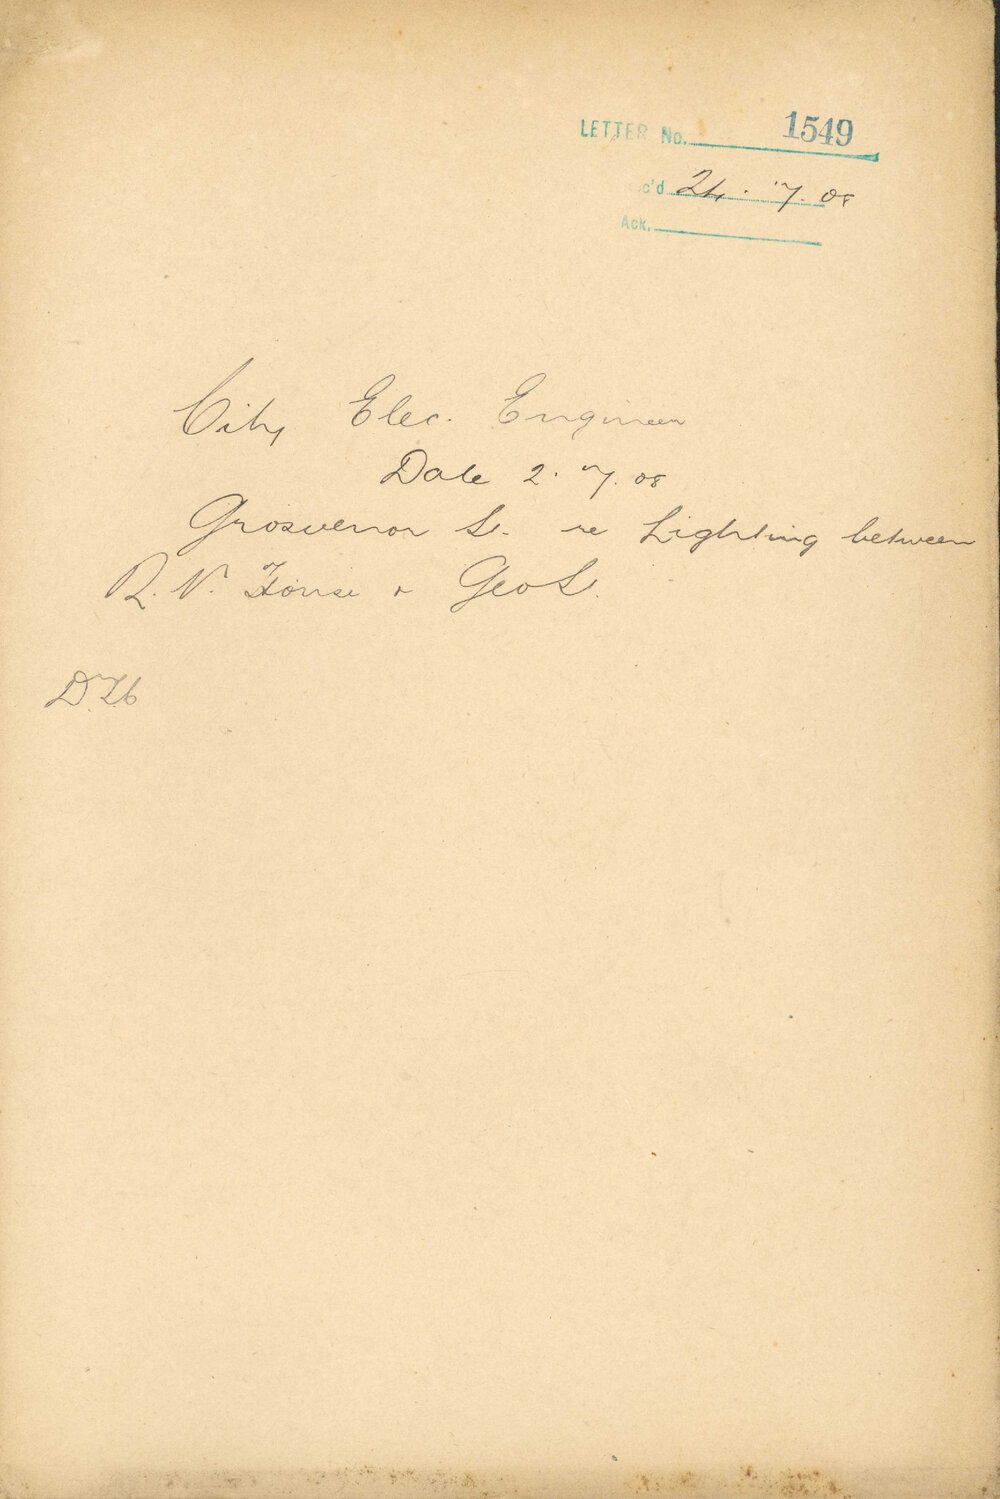 LETTER No. 1549
c'd 24.7.08
Ack.
City Elec. Engineer
Date 2.7.08
Grosvenor St. re Lighting between
R.N. House & Geo St.